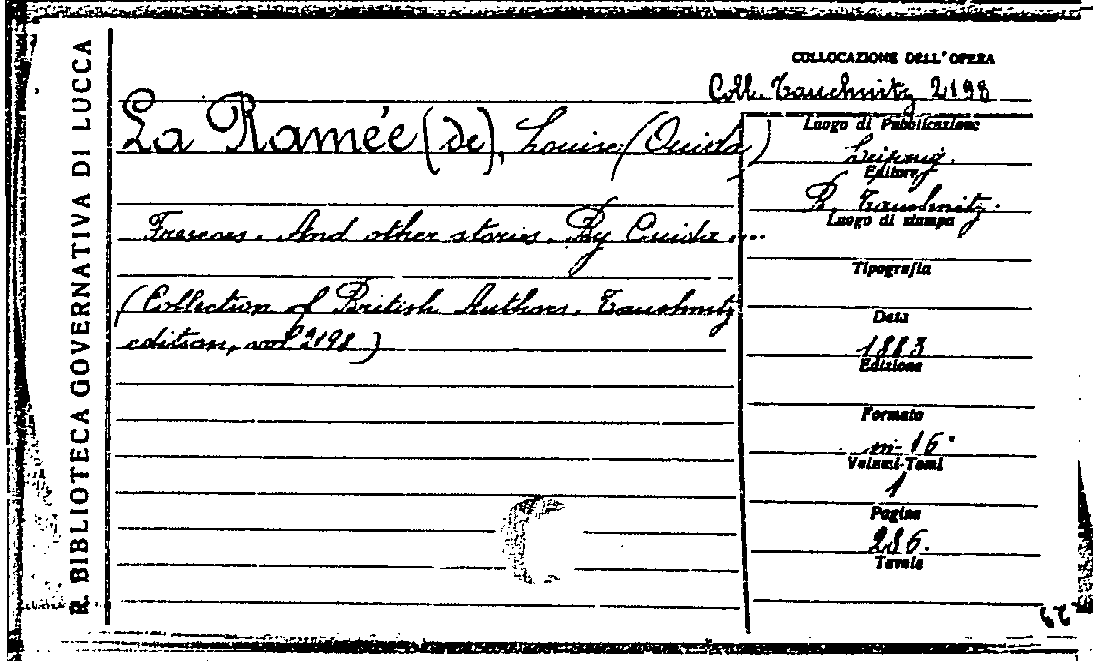 R. BIBLIOTECA GOVERNATIVA DI LUCCA
COLLOCAZIONE DELL'OPERA
Coll. Tauchnitz 2198
La Ramée (de), Louise (Ouida)
Frescoes. And other stories. By Ouida ....
(Collection of British Authors. Tauchnitz
edition, vol 2198)
Luogo di Pubblicazione
Leipzig.
Editore
B. Tauchnitz.
Luogo di stampa
Tipografia
Data
1883
Edizione
Formato
in-16°
Volumi-Tomi
1
Pagine
286.
Tavole